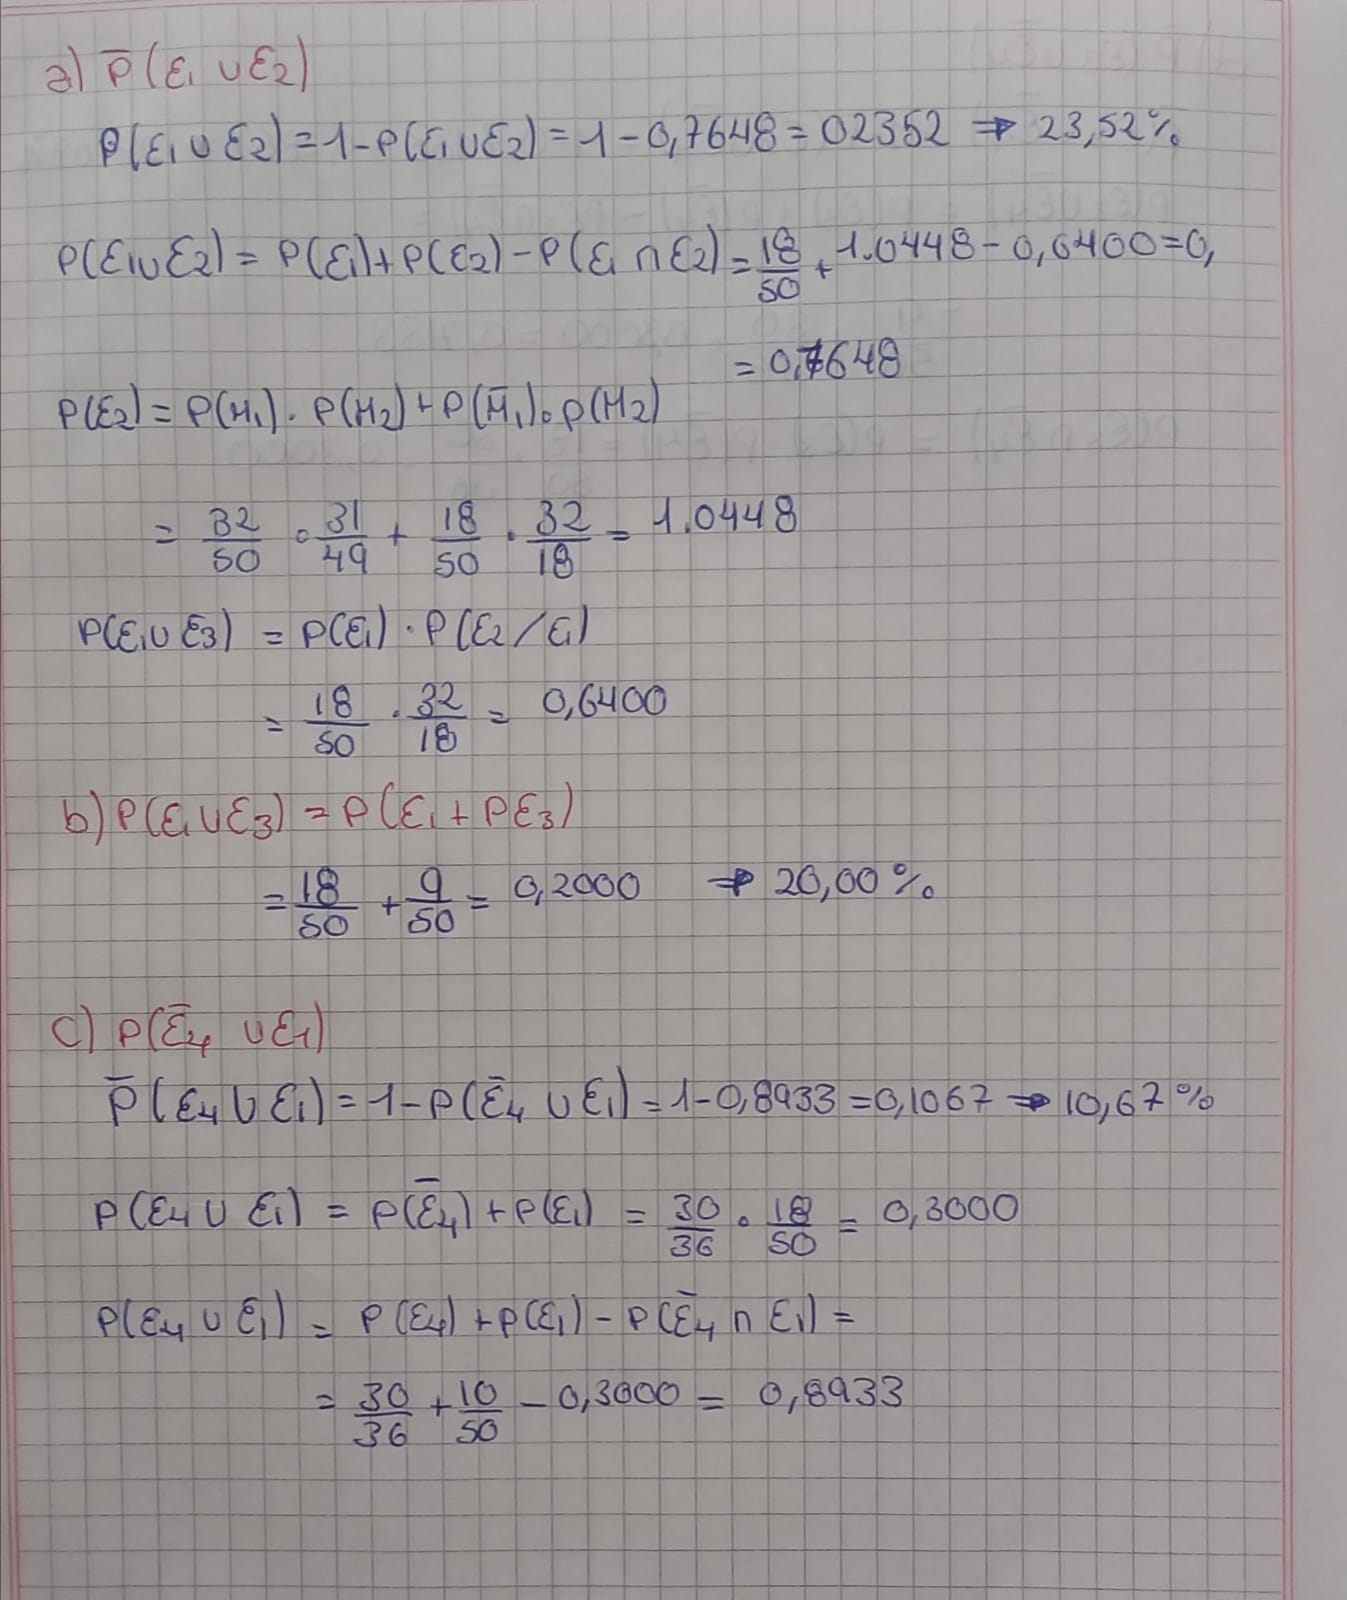 a) P̅(ε₁ ∪ ε₂)
P(ε₁ ∪ ε₂) = 1 - P(ε₁ ∪ ε₂) = 1 - 0,7648 = 02352 ⇒ 23,52%
P(ε₁∪ε₂) = P(ε₁) + P(ε₂) - P(ε₁ ∩ ε₂) = 18/50 + 1.0448 - 0,6400 = 0,
= 0,7648
P(ε₂) = P(H₁) · P(H₂) + P(H̅₁) · P(H₂)
= 32/50 · 31/49 + 18/50 · 32/18 = 1.0448
P(ε₁∪ε₃) = P(ε₁) · P(ε₂/ε₁)
= 18/50 · 32/18 = 0,6400
b) P(ε₁∪ε₃) = P(ε₁ + Pε₃)
= 18/50 + 9/50 = 0,2000 ⇒ 20,00%
c) P(ε̅₄ ∪ ε₁)
P̅(ε₄ ∪ ε₁) = 1 - P(ε̅₄ ∪ ε₁) = 1 - 0,8933 = 0,1067 ⇒ 10,67%
P(ε₄ ∪ ε₁) = P(ε̅₄) + P(ε₁) = 30/36 · 18/50 = 0,3000
P(ε₄ ∪ ε₁) = P(ε₄) + P(ε₁) - P(ε̅₄ ∩ ε₁) =
= 30/36 + 10/50 - 0,3000 = 0,8933